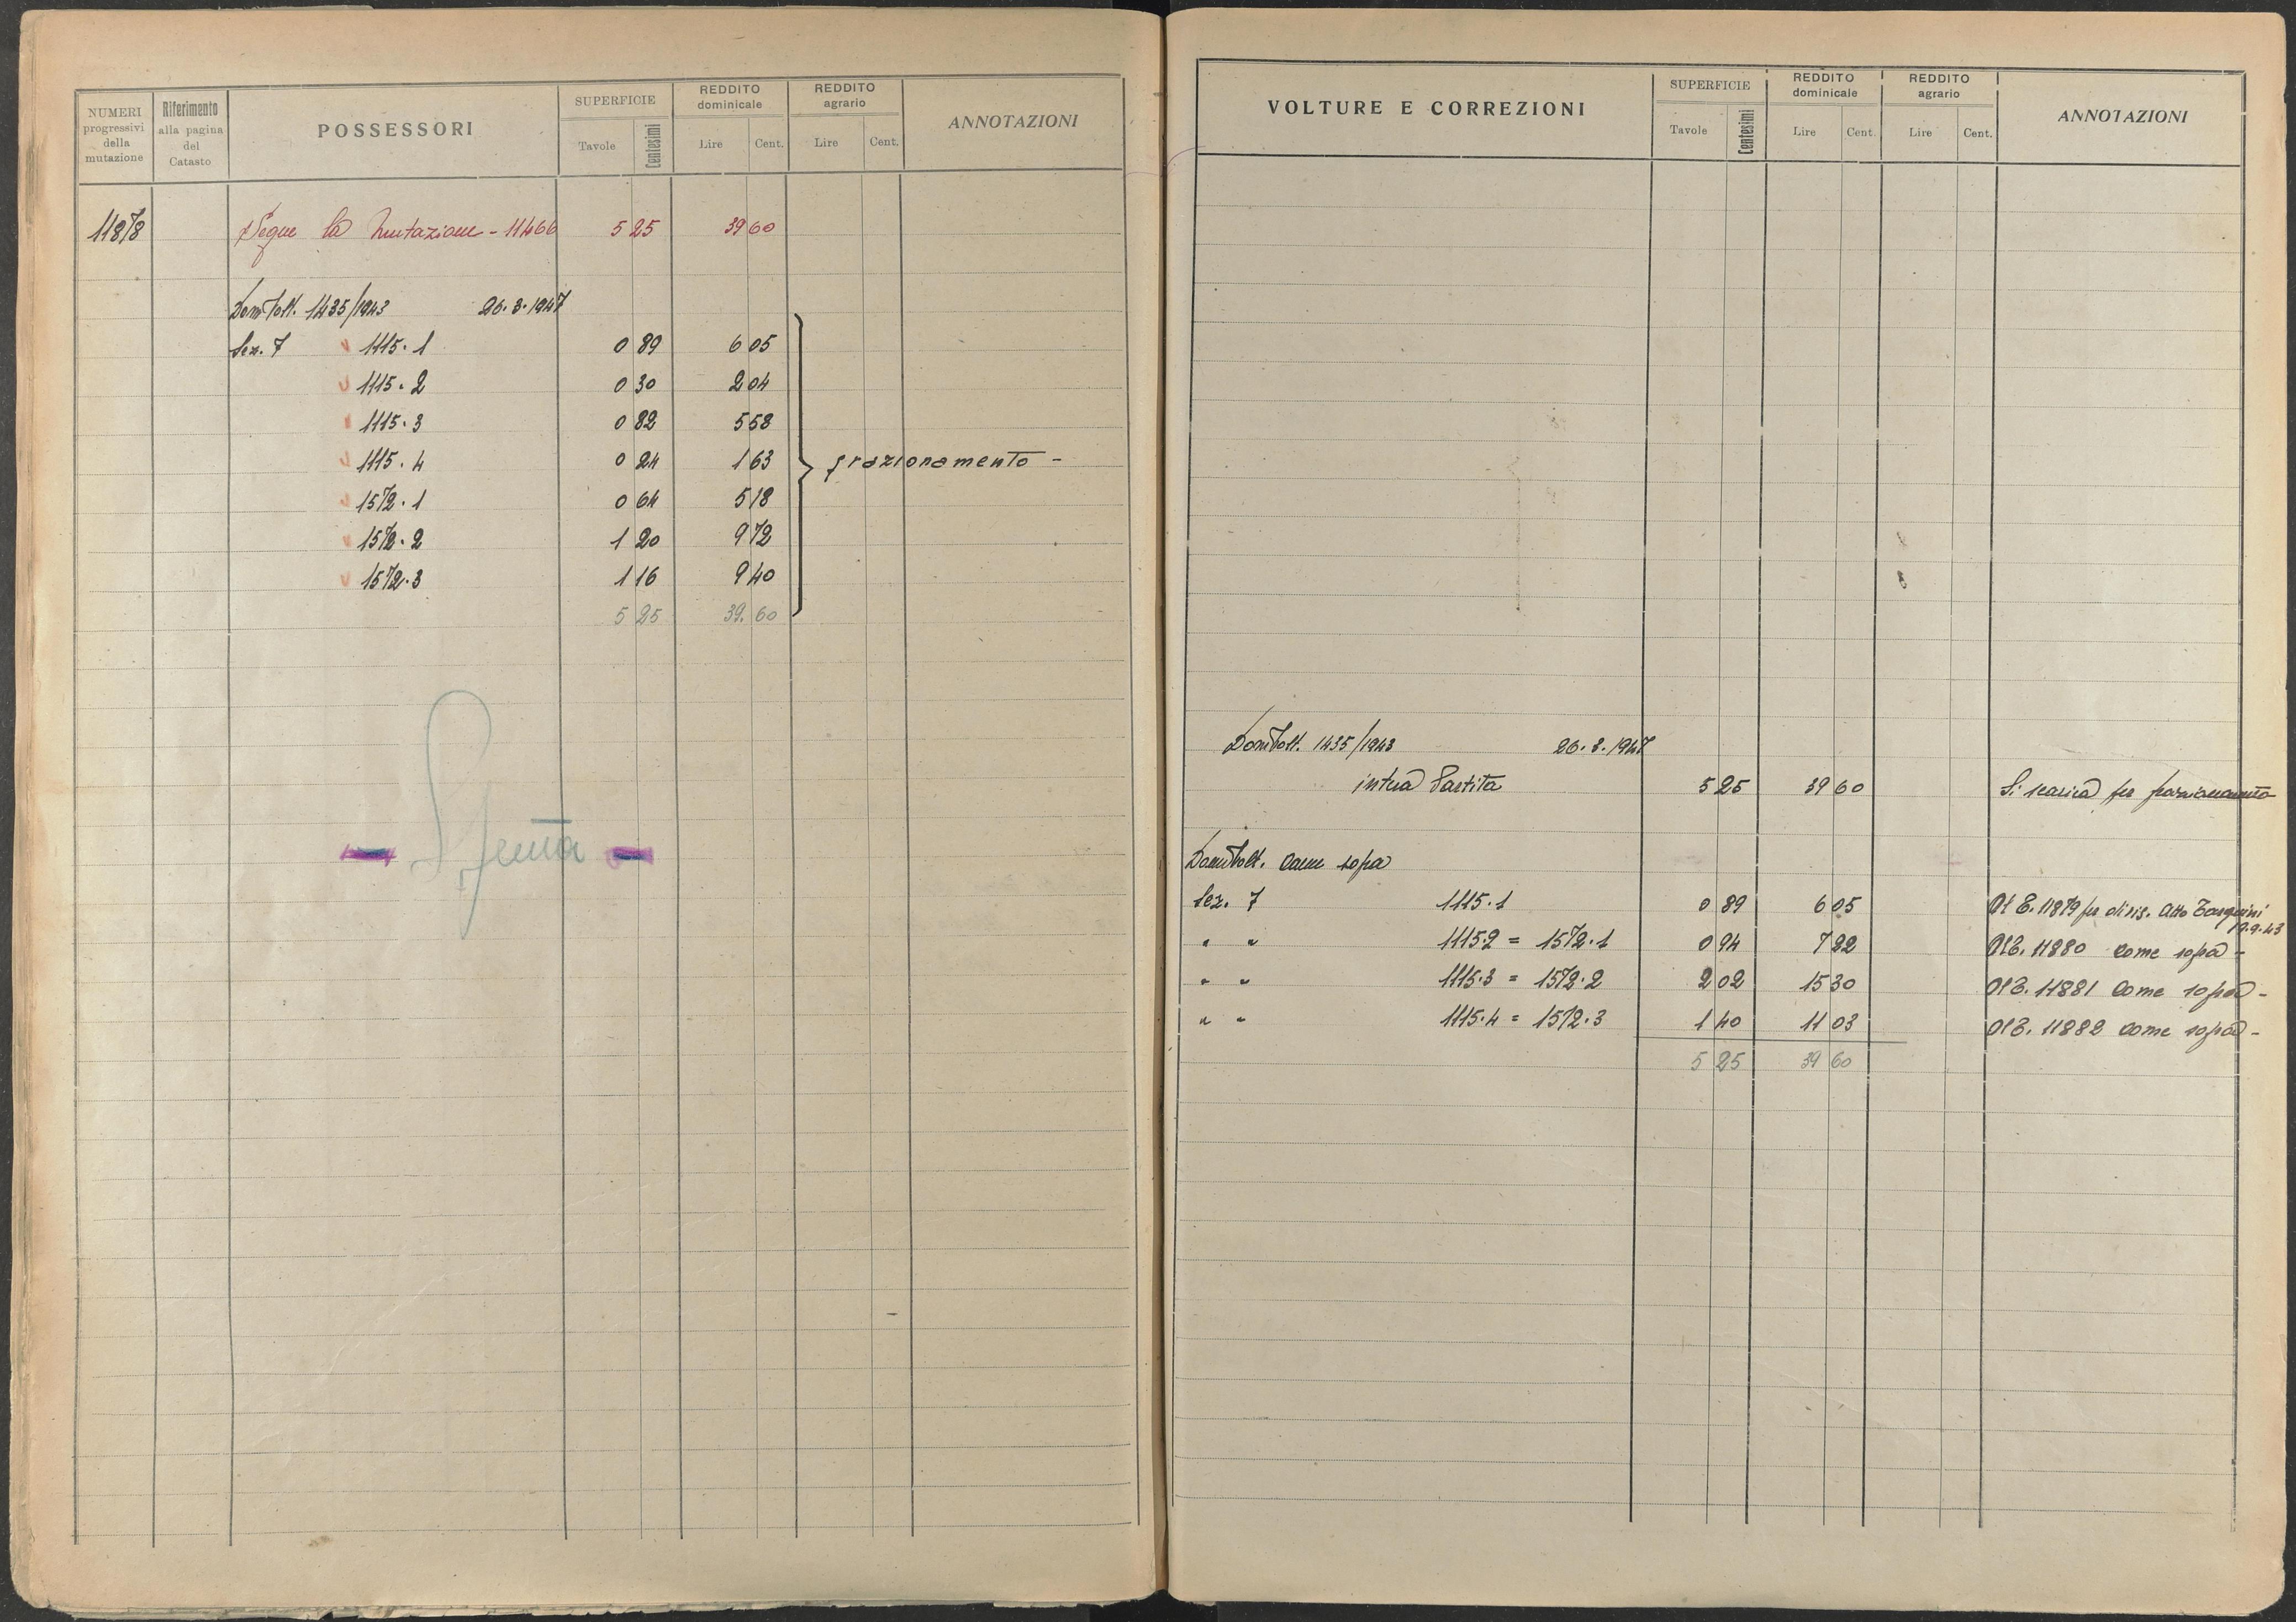 NUMERI progressivi della mutazione | Riferimento alla pagina del Catasto | POSSESSORI | SUPERFICIE Tavole Centesimi | REDDITO dominicale Lire Cent. | REDDITO agrario Lire Cent. | ANNOTAZIONI
11878 Segue la Mutazione - 11466 5 25 39 60
Dom Volt. 1435/1943 26.3.1947
Sez. 7 1115.1 0 89 6 05
1115.2 0 30 2 04
1115.3 0 82 5 58
1115.4 0 24 1 63 frazionamento -
1572.1 0 64 5 18
1572.2 1 20 9 72
1572.3 1 16 9 40
5 25 39.60
- Spenta -
VOLTURE E CORREZIONI | SUPERFICIE Tavole Centesimi | REDDITO dominicale Lire Cent. | REDDITO agrario Lire Cent. | ANNOTAZIONI
Dom Volt. 1435/1943 26.3.1947
intera Partita 5 25 39 60 Si scarica per frazionamento
Dom Volt. come sopra
Sez. 7 1115.1 0 89 6 05 Al C. 11879 per divis. Atto Tarquini
19.9.43
" " 1115.2 = 1572.1 0 94 7 22 Al C. 11880 come sopra -
" " 1115.3 = 1572.2 2 02 15 30 Al C. 11881 come sopra -
" " 1115.4 = 1572.3 1 40 11 03 Al C. 11882 come sopra -
5 25 39 60